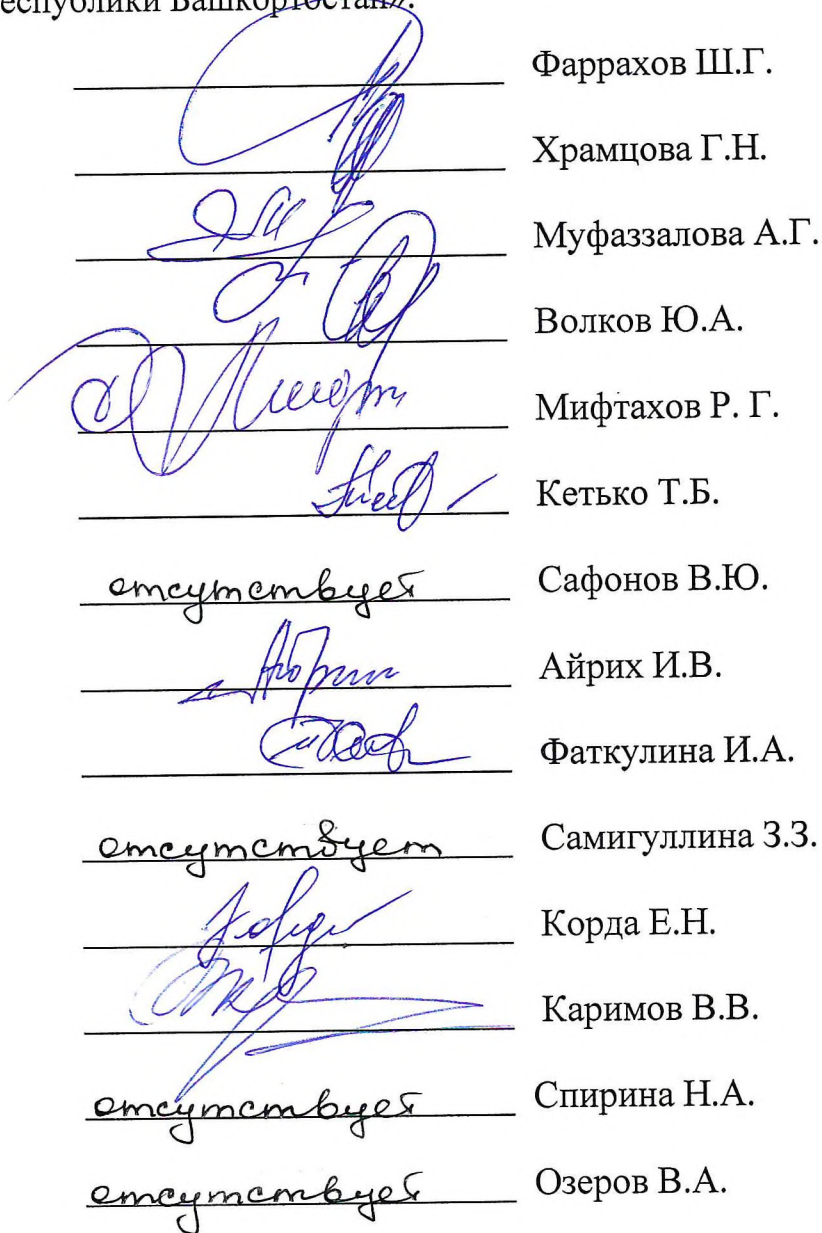 еспублики Башкортостан».
Фаррахов Ш.Г.
Храмцова Г.Н.
Муфаззалова А.Г.
Волков Ю.А.
Мифтахов Р. Г.
Кетько Т.Б.
отсутствует Сафонов В.Ю.
Айрих И.В.
Фаткулина И.А.
отсутствует Самигуллина З.З.
Корда Е.Н.
Каримов В.В.
отсутствует Спирина Н.А.
отсутствует Озеров В.А.